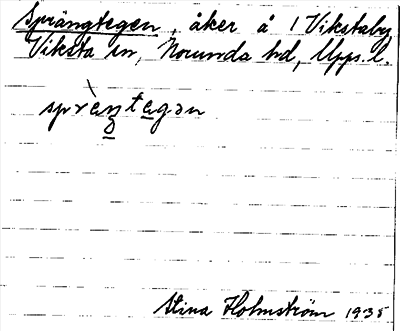 Sprängtegen, åker å 1 Vikstaby
Viksta sn, Norunda hd, Upps. l.
sprèŋtegən
Stina Holmström 1935